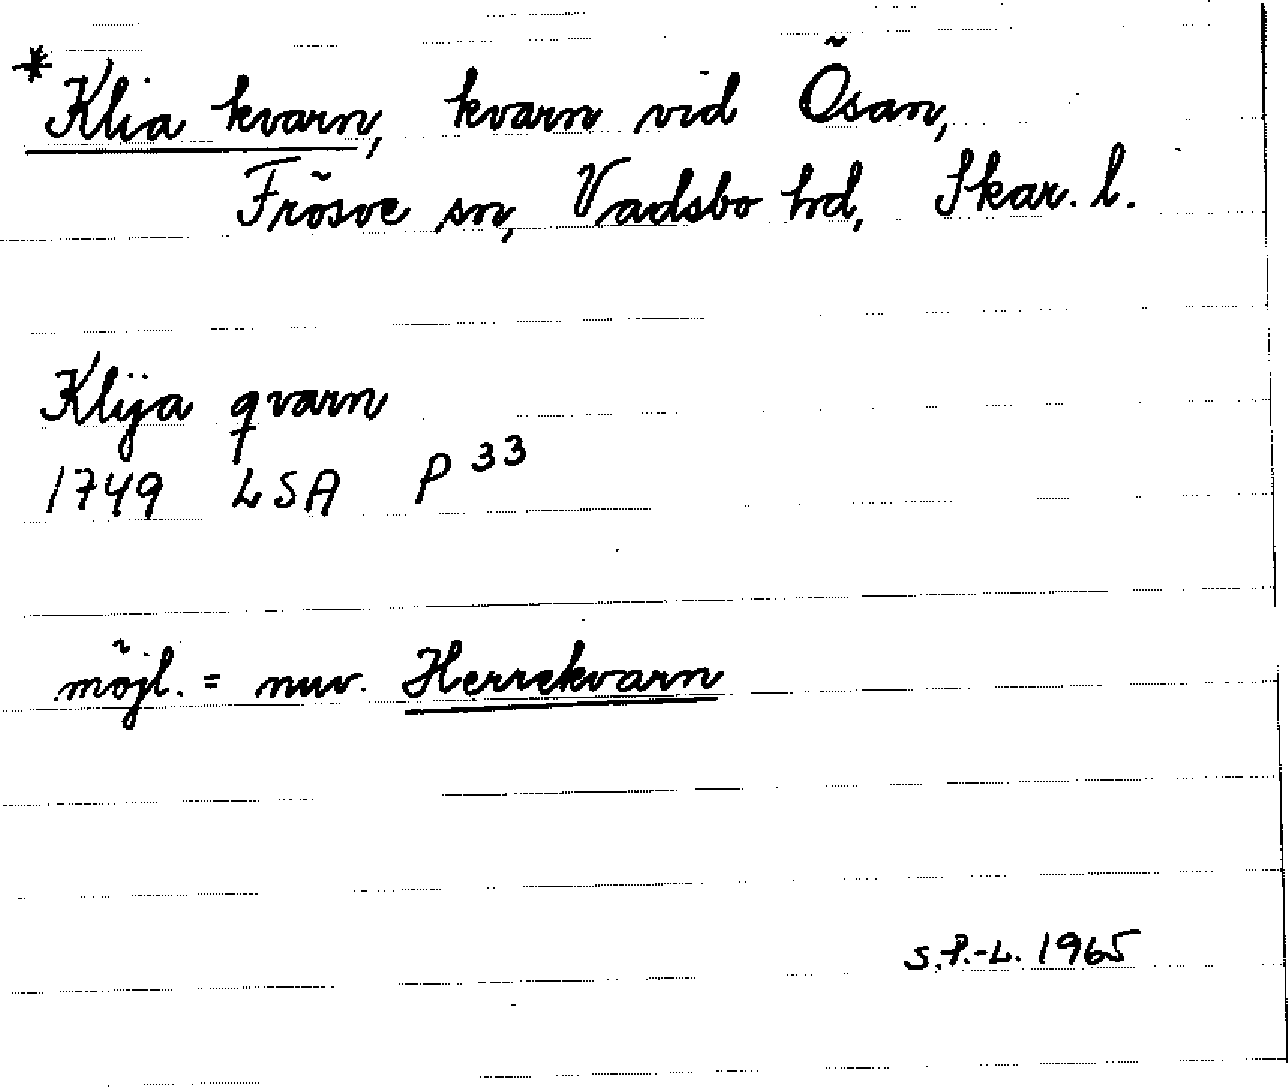 *Klia kvarn, kvarn vid Ösan,
Frösve sn, Vadsbo hd, Skar. l.
Klÿa qvarn
1749 LSA P 33
möjl. = nuv. Herrekvarn
S.P.-L. 1965